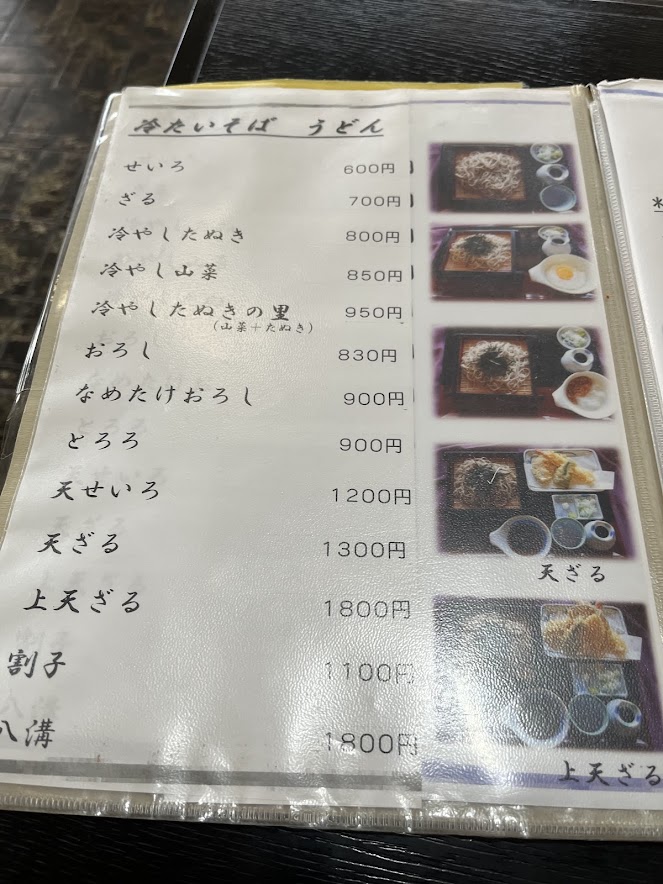 冷たいそば　うどん
せいろ　600円
ざる　700円
冷やしたぬき　800円
冷やし山菜　850円
冷やしたぬきの里　950円
(山菜+たぬき)
おろし　830円
なめたけおろし　900円
とろろ　900円
天せいろ　1200円
天ざる　1300円
上天ざる　1800円
割子　1100円
八溝　1800円
天ざる
上天ざる